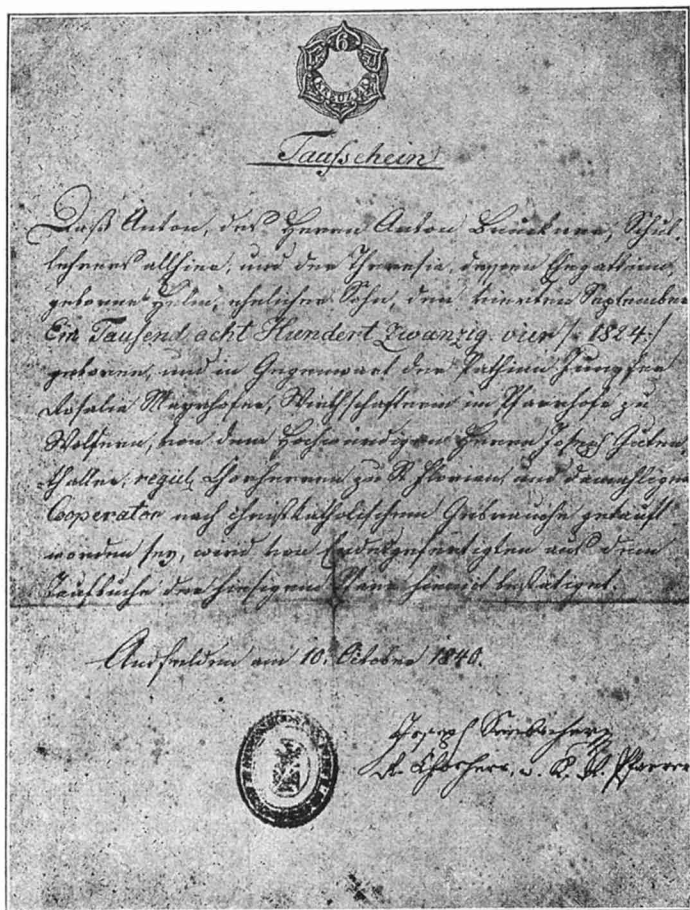 6
KREUZER
Taufschein
Daß Anton, des Herrn Anton Bruckner, Schul-
lehrers allhier, und der Theresia, dessen Ehegattinn,
geborne Helm, ehelicher Sohn, den vierten September
Ein Tausend acht Hundert Zwanzig vier /: 1824 :/
geboren, und in Gegenwart der Pathinn Jungfer
Rosalia Mayrhofer, Wirthschafterin im Pfarrhofe zu
Wolfern, von dem Hochwürdigen Herrn Joseph Guten-
thaller, regul. Chorherrn zu St. Florian, und damahligen
Cooperator nach christkatholischem Gebrauche getauft
worden sey, wird von Endesgefertigten aus dem
Taufbuche der hiesigen Pfarr hiemit bestätiget.
Ansfelden am 10. October 1840.
Joseph Seebacher
r. Chorherr, u. Pfarrer